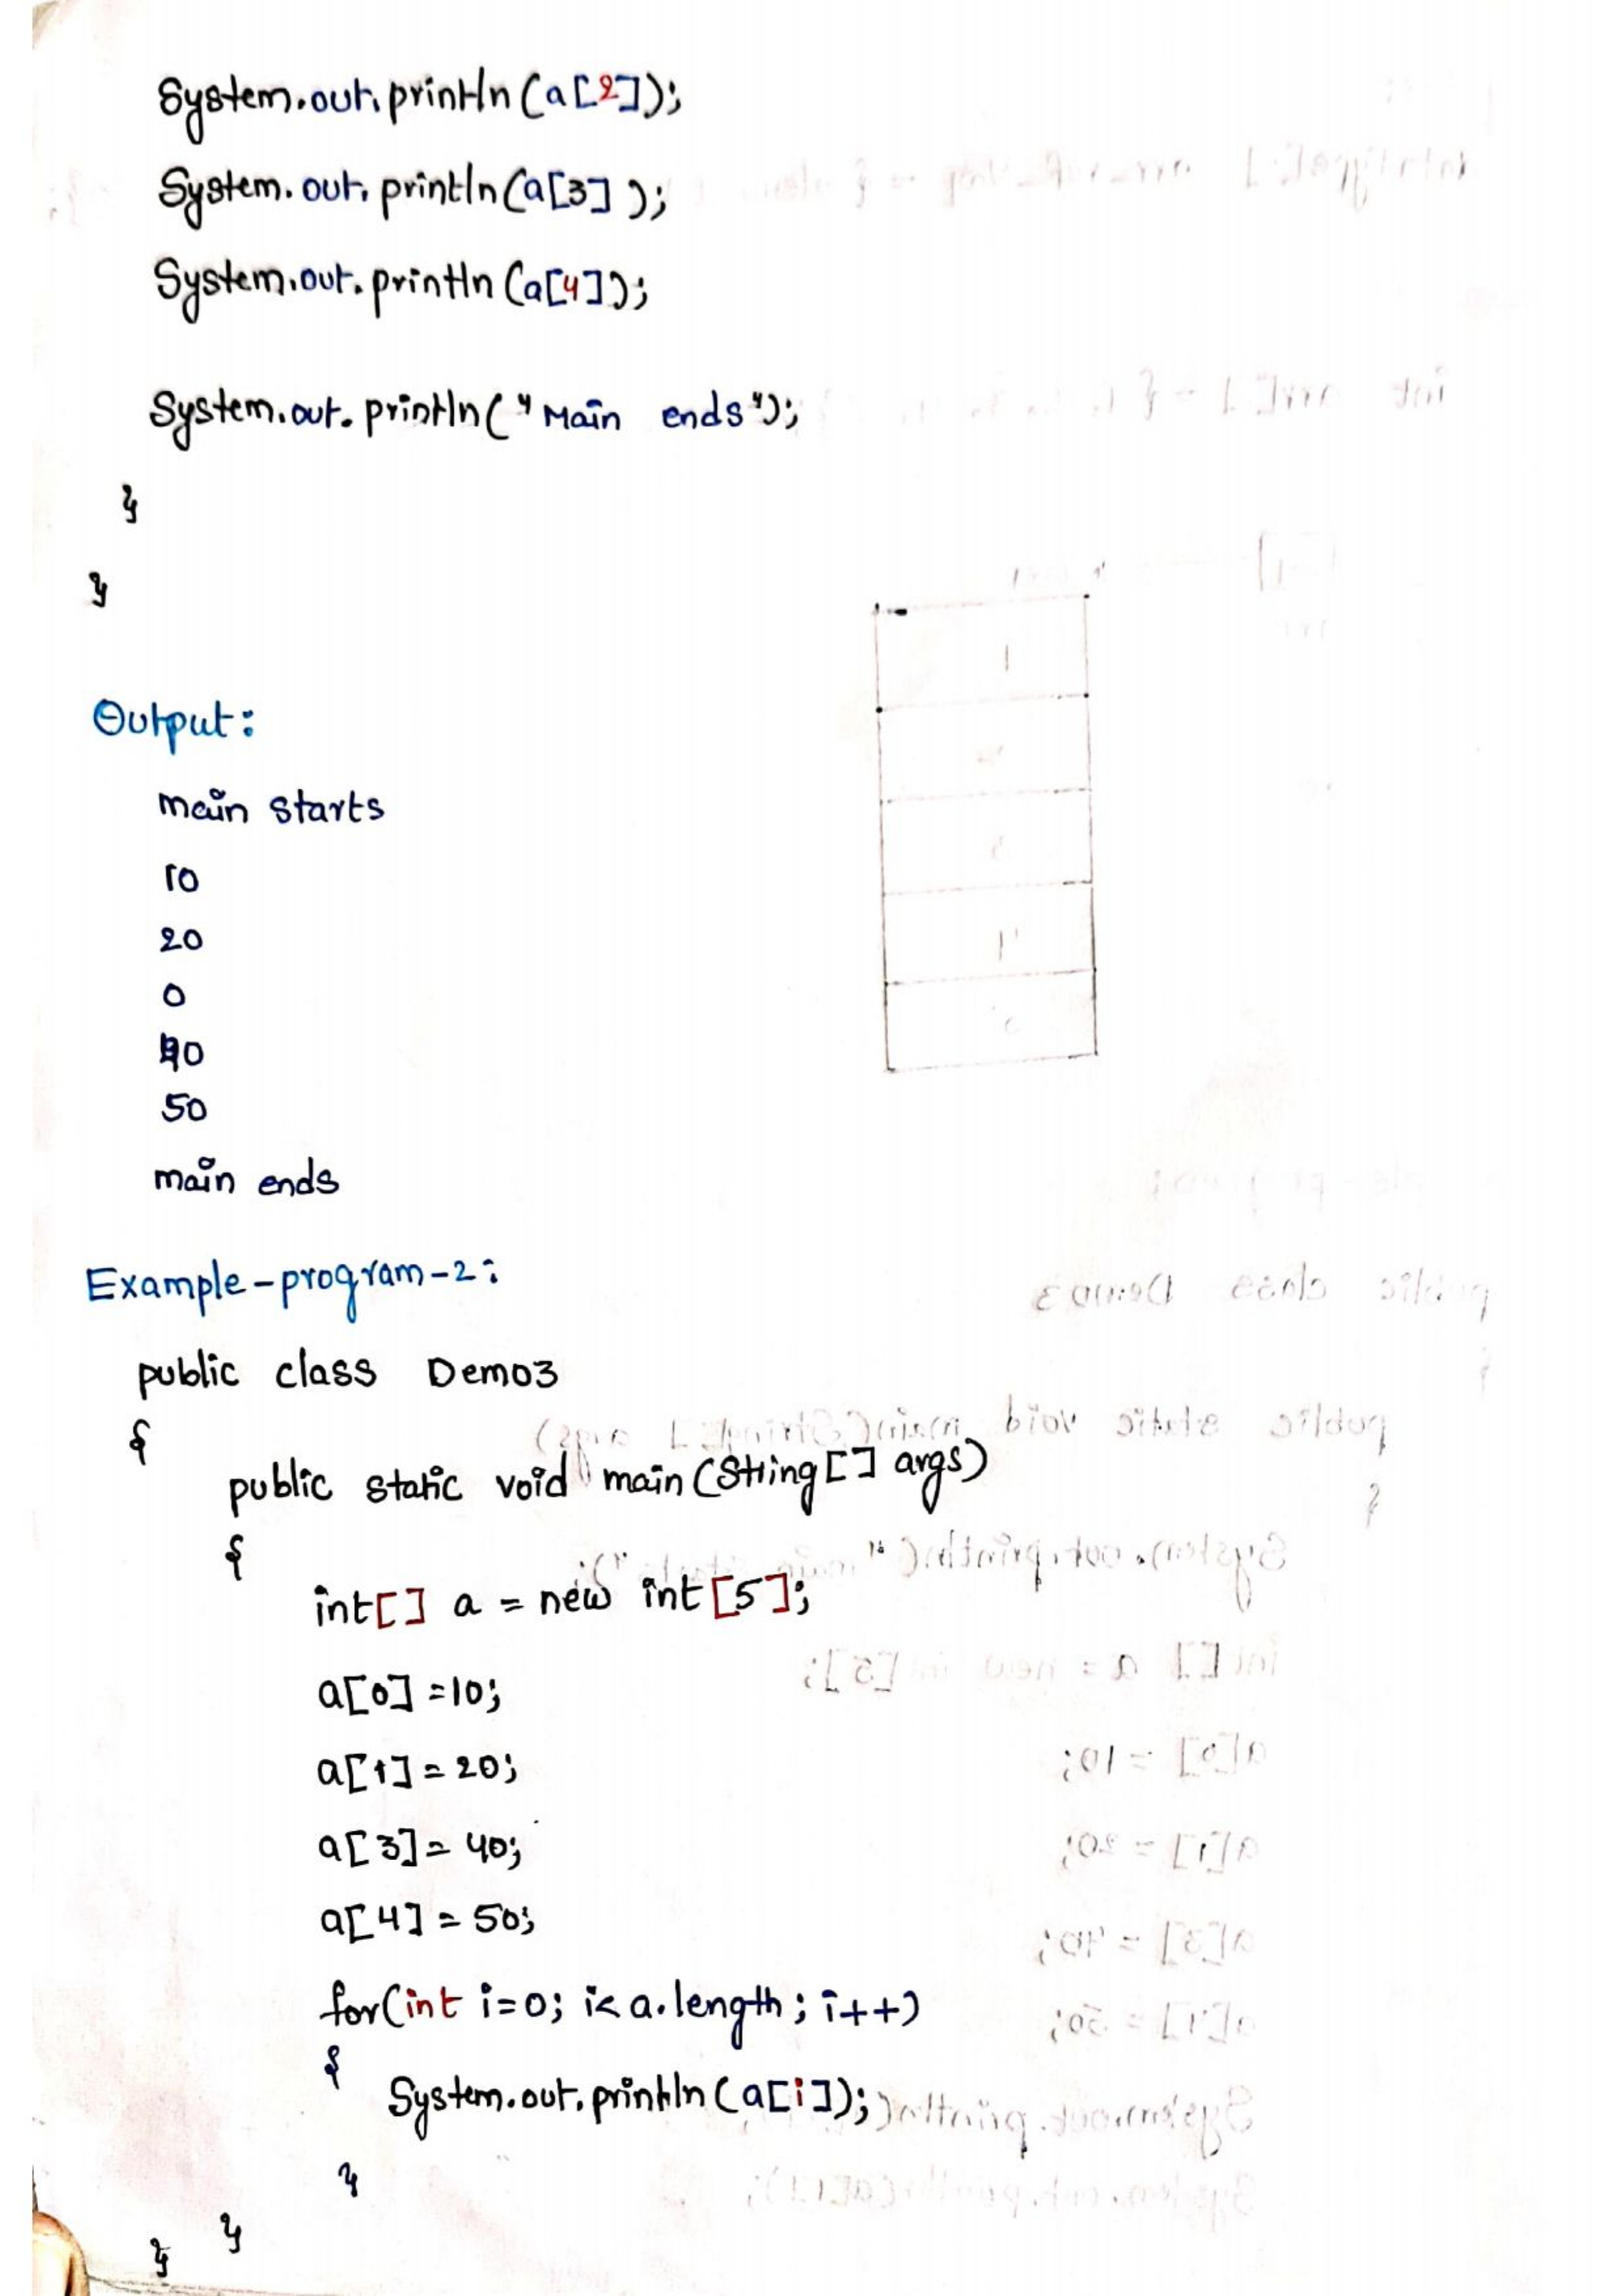 System.out.println(a[2]);
System.out.println(a[3]);
System.out.println(a[4]);
System.out.println("Main ends");
}
}
Output:
main starts
10
20
0
40
50
main ends
Example-program-2:
public class Demo3
{
public static void main(String[] args)
{
int[] a = new int[5];
a[0]=10;
a[1]=20;
a[3]=40;
a[4]=50;
for(int i=0; i<a.length; i++)
{
System.out.println(a[i]);
}
}
}